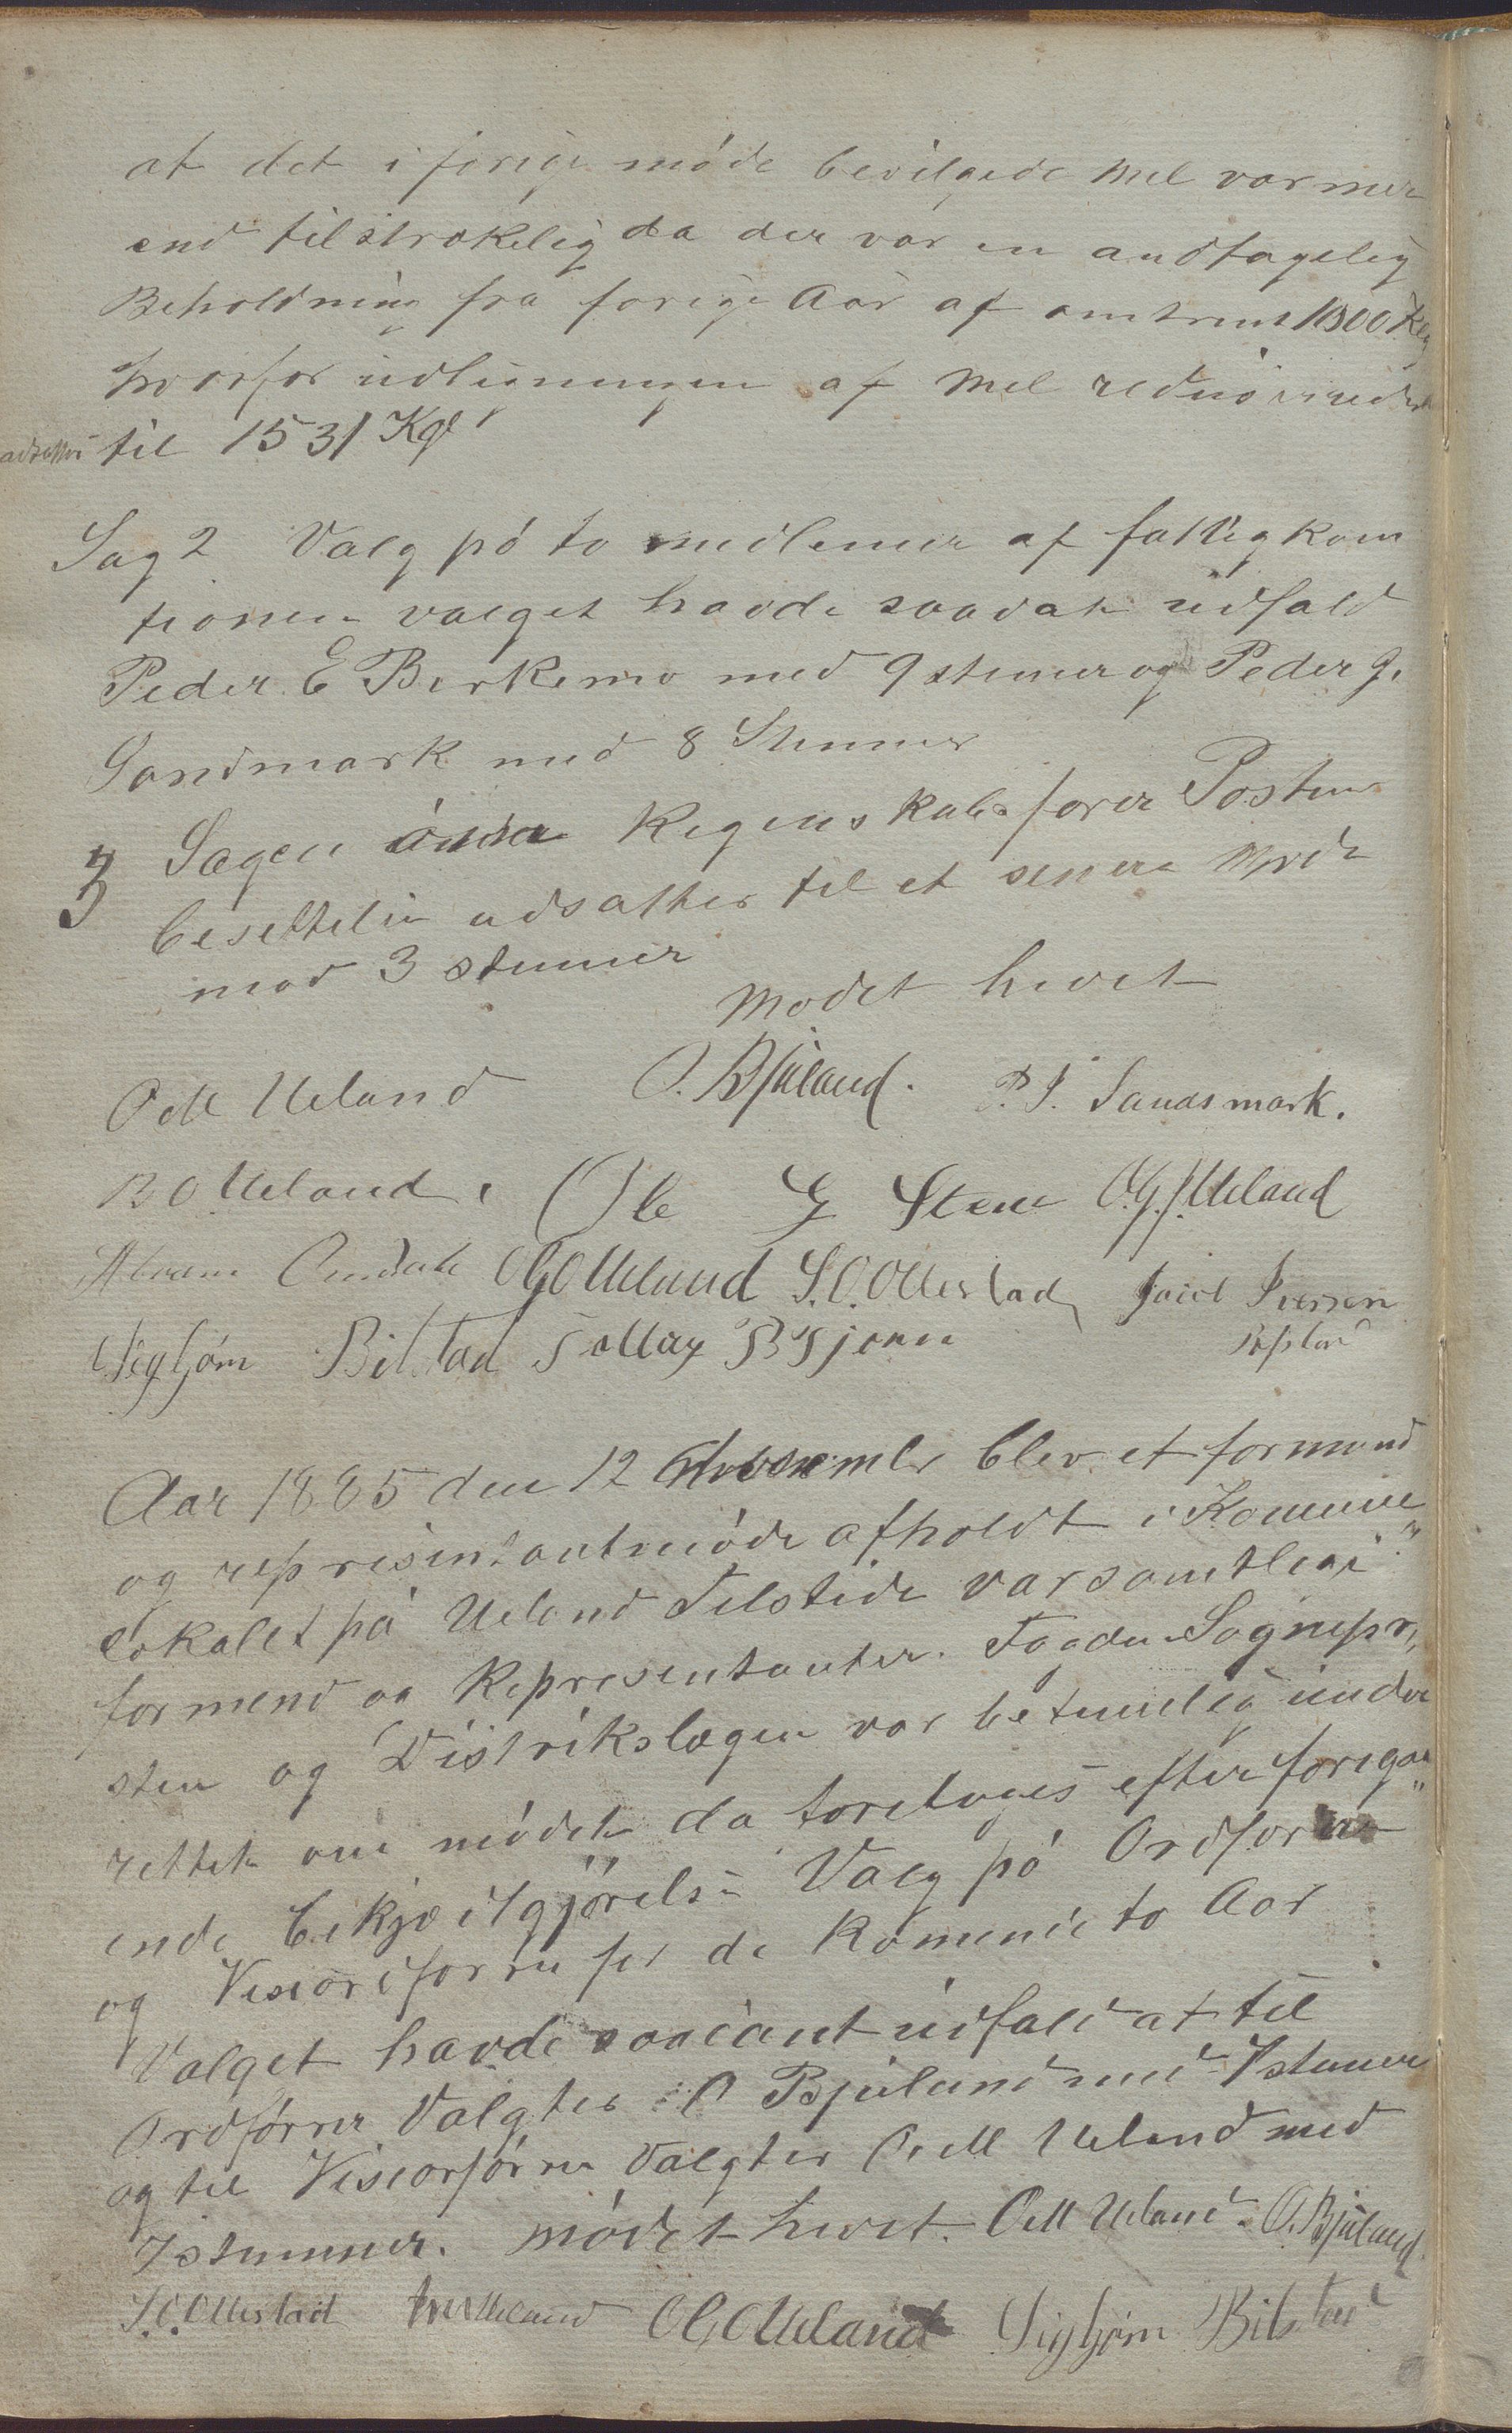 at det i forige møde bevilgede Mel var mer
end tilstrækelig da der var en andtagelig
Beholdning fra forige Aar af omtrent 1000 Klg
hvorfor udligningen af Mel
til 1531 Kgl
Sag 2 Valg på to medlemer af fattigkom
tionen valget havde saadat udfald
Peder E Birkemo med 9 stemer og Peder J.
Sandmark med 8 Stemmer
3 Sagen Regenskabsforer Postens
besettelse udsattes til et senere Møde
mod 3 stemmer
Modet hevet
O M Ueland O. Bjuland. P. J. Sandsmark.
B O Ueland. Ole G Stene O. G. Ueland
Abram Omdal O G O Ueland S. O. Ollestad Jacob Iversen
Sigbjørn Bilstad Tollag B Gjerne
Aar 1885 den 12 blev et formend
og represintantmøde afholdt i Komune„
lokalet på Ueland Tilstede var samtlige
formend og Representanter. Fogden Sognepr,
sten og Distrikslægen var betimelig under
rettet om mødet da foretoges efter foregaa„
ende bekjendtgjørelse Valg på Ordforer
og Viseordforer for de komende to Aar
Valget havde saadant udfald at til
Ordfører Valgtes O Bjuland med 7 stemer
og til Viseorførrer Valgtes O M Ueland med
7 stemmer. mødet hevet. O M Ueland. O. Bjuland.
S. O. Ollestad Ueland O G O Ueland Sigbjørn Bilstad